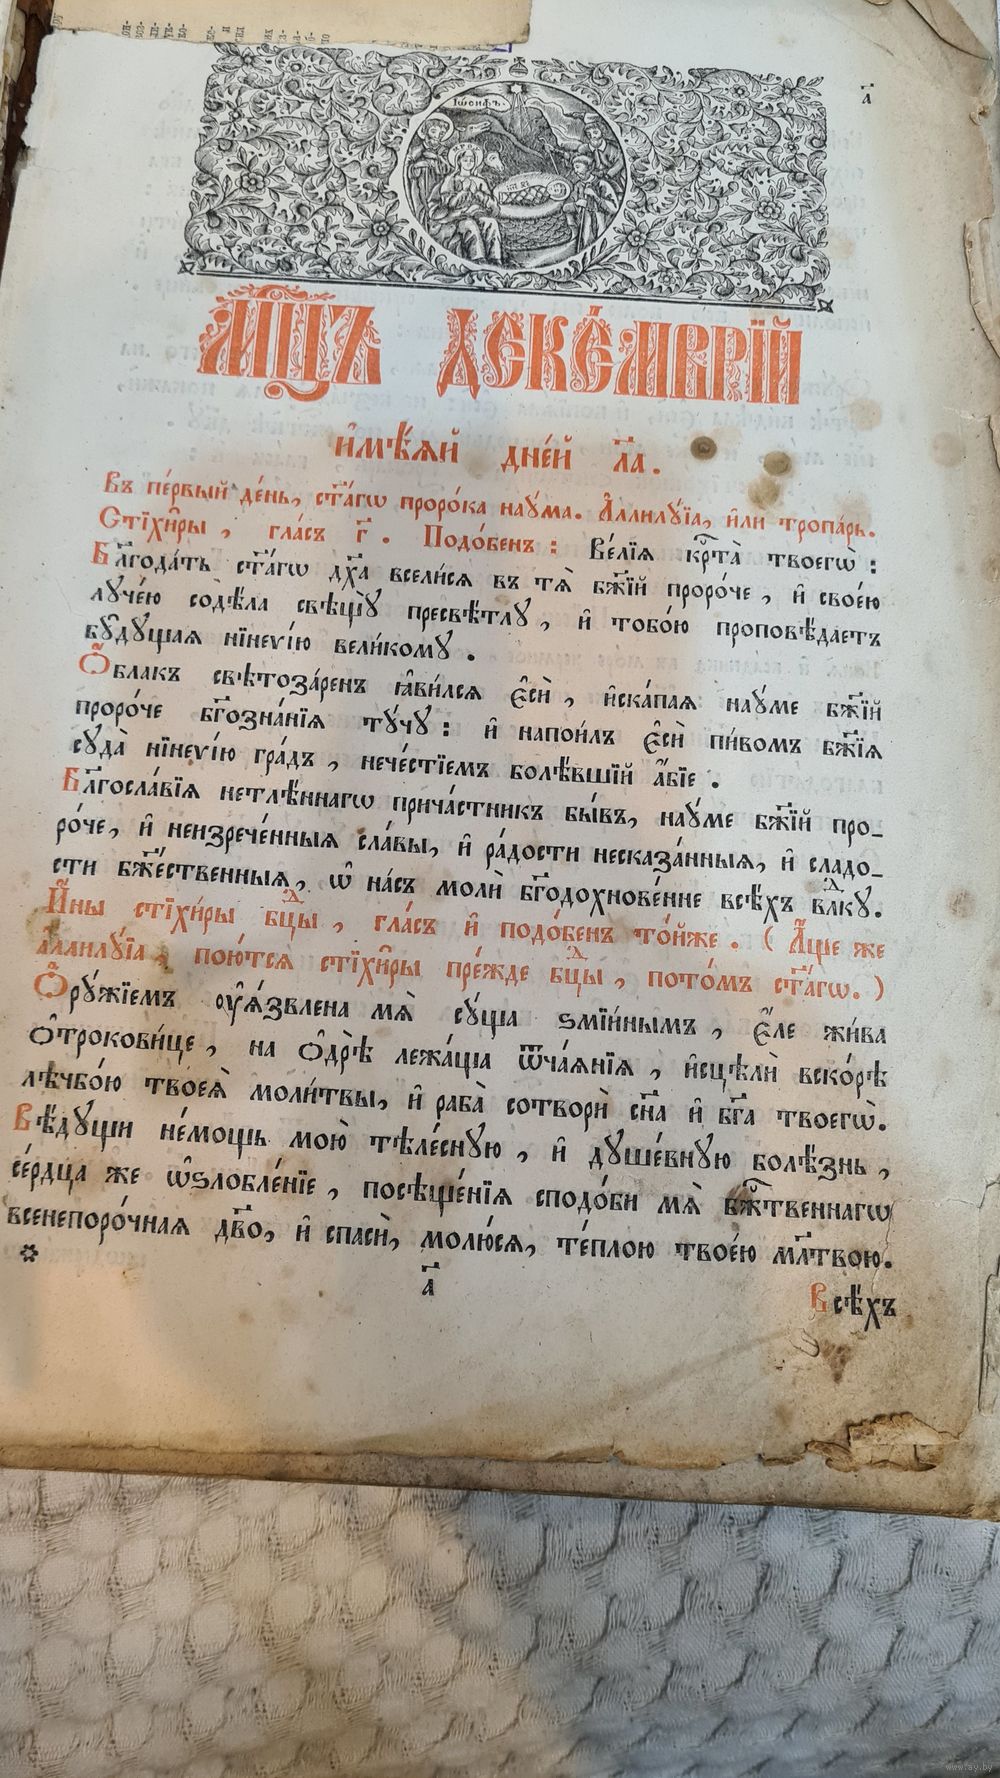 а҃
Іѡсифъ
Мцⷭъ деке́мврїй
и҆мѣ́ѧй дне́й л҃а.
Въ пе́рвый де́нь, ст҃а́гѡ проро́ка наꙋ́ма. А҆ллилꙋ́їа, и҆лѝ тропа́рь.
Стїхи̑ры, гла́съ г҃. Подо́бенъ: Ве́лїѧ крⷭ҇та̀ твоегѡ̀:
Бл҃года́ть ст҃а́гѡ дх҃а всели́сѧ въ тѧ̀ бж҃їй проро́че, и҆ свое́ю
лꙋче́ю содѣ́ла свѣщꙋ̀ пресвѣ́тлꙋ, и҆ тобо́ю проповѣ́даетъ
бꙋ̑дꙋщаѧ нїнеѵі́ю вели́комꙋ.
Ѻ҆́блакъ свѣтоза́ренъ ꙗ҆ви́лсѧ є҆сѝ, и҆ска́паѧ наꙋ́ме бж҃їй
проро́че бг҃озна́нїѧ тꙋ́чꙋ: и҆ напои́лъ є҆сѝ пи́вомъ бж҃їѧ
сꙋда̀ нїнеѵі́ю гра́дъ, нече́стїемъ болѣ́вшїй а҆́бїе.
Бл҃госла́вїѧ нетлѣ́ннагѡ прича́стникъ бы́въ, наꙋ́ме бж҃їй про-
ро́че, и҆ неизрече́нныѧ сла́вы, и҆ ра́дости несказа́нныѧ, и҆ сладо-
сти бж҃е́ственныѧ, ѡ҆ на́съ молѝ бг҃одохнове́нне всѣ́хъ влⷣкꙋ.
И҆́ны стїхи́ры бцⷣы, гла́съ и҆ подо́бенъ то́йже. (А҆́ще же
А҆ллилꙋ́їа, пою́тсѧ стїхи̑ры пре́жде бцⷣы, пото́мъ ст҃а́гѡ.)
Ѻ҆рꙋ́жїемъ ᲂу҆ѧ́звлена мѧ̀ сꙋ́ща ѕмїи́нымъ, є҆́ле жи́ва
ѻ҆трокови́це, на ѻ҆дрѣ̀ лежа́ща ѿча́ѧнїѧ, и҆сцѣлѝ вско́рѣ
лѣчбо́ю твоеѧ̀ моли́твы, и҆ раба̀ сотворѝ сн҃а и҆ бг҃а твоегѡ̀.
Вѣ́дꙋщи не́мощь мою̀ тѣле́снꙋю, и҆ дꙋше́внꙋю болѣ́знь,
се́рдца же ѡ҆ѕлобле́нїе, посѣще́нїѧ сподо́би мѧ̀ бжⷭ҇твеннагѡ
всенепоро́чнаѧ дв҃о, и҆ спасѝ, молю́сѧ, те́плою твое́ю мл҃твою.
а҃
Всѣ́хъ
www.ay.by